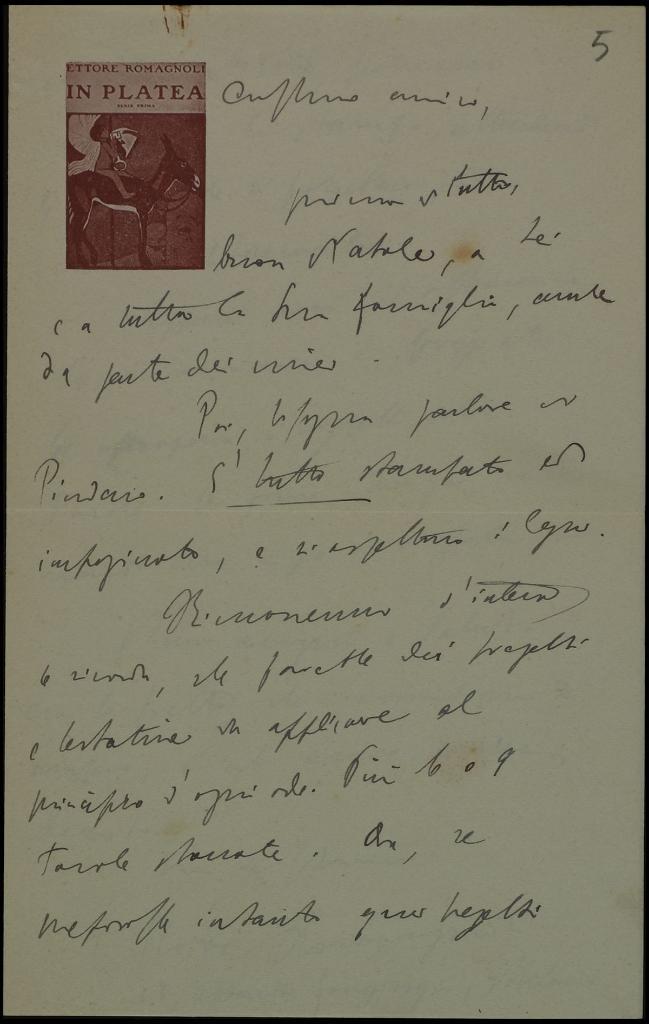 5
ETTORE ROMAGNOLI
IN PLATEA
SERIE PRIMA
amico,
prima di tutto,
buon Natale, a Lei
e a tutta la Sua famiglia, anche
da parte dei miei.
Poi, bisogna parlare di
Pindaro. È tutto stampato ed
impaginato, e si aspettano i legni.
Rimanemmo d'intesa
lo ricorda, che farebbe dei fregetti
e testatine da applicare al
principio d'ogni ode. Più 6 o 9
tavole staccate. Ora, se
intanto quei fregetti